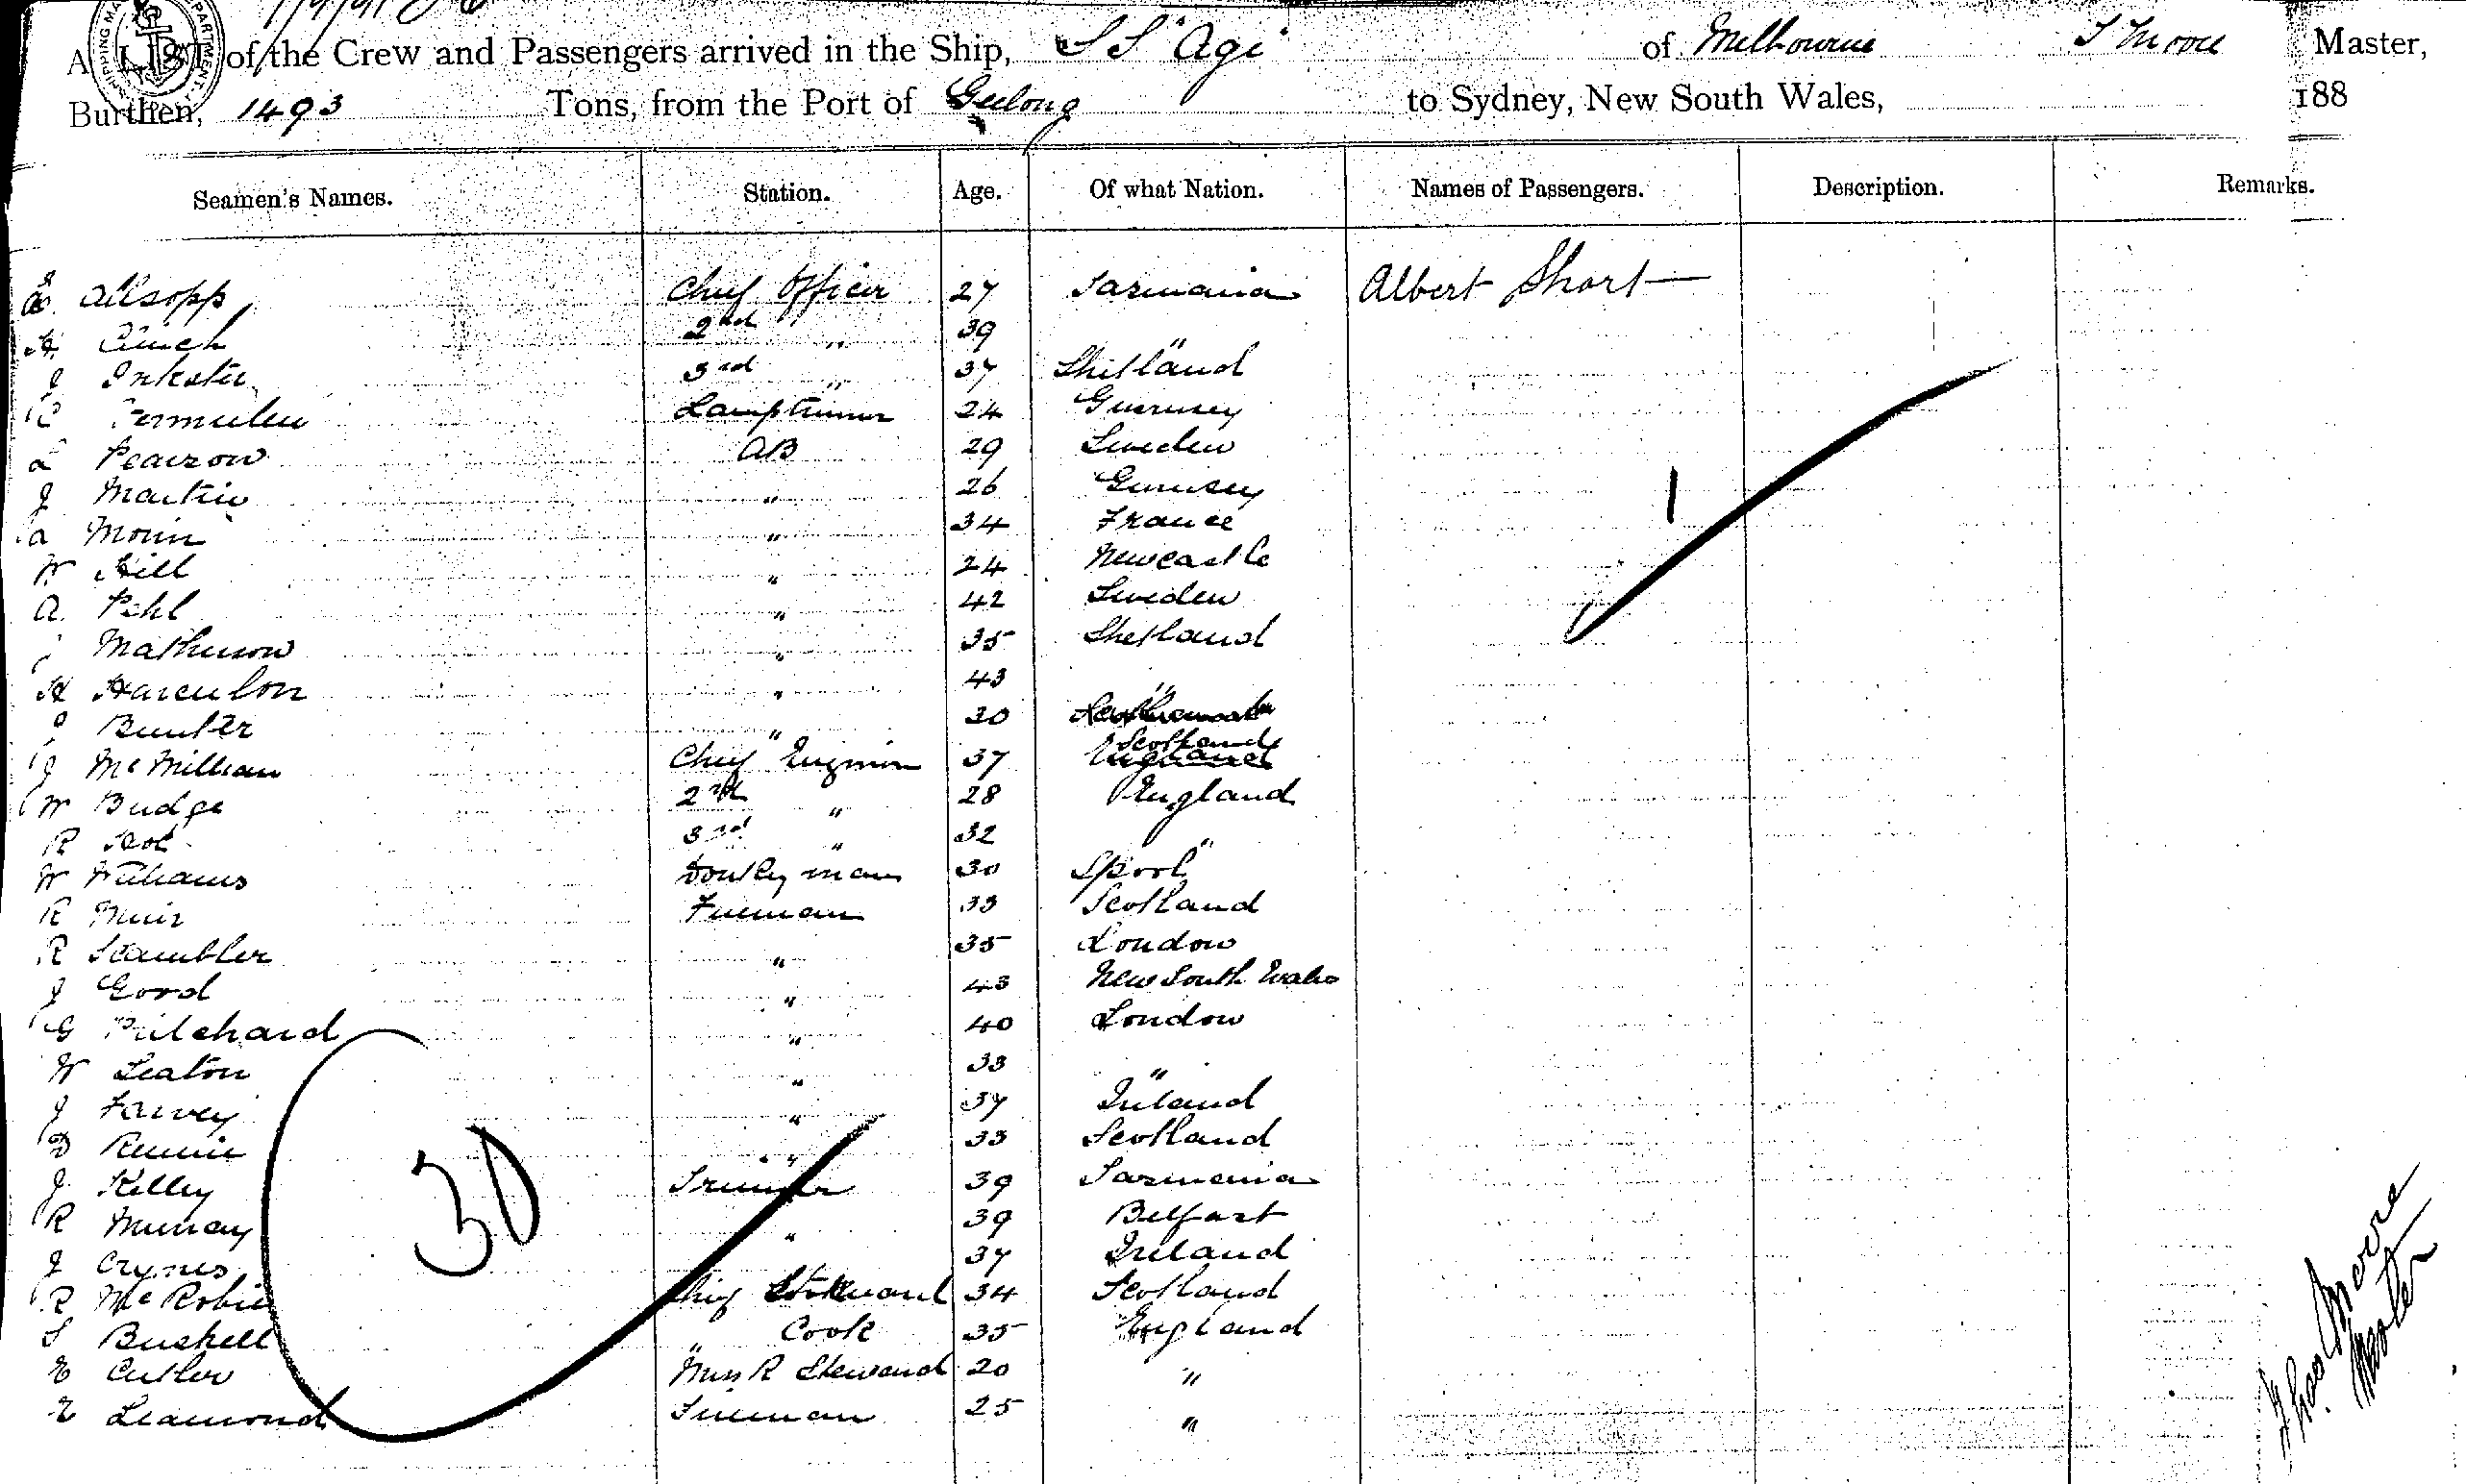 A LIST of the Crew and Passengers arrived in the Ship, S S "Age" of Melbourne T Moore Master,
Burthen, 1493 Tons, from the Port of Geelong to Sydney, New South Wales, 188
Seamen's Names. Station. Age. Of what Nation. Names of Passengers. Description. Remarks.
Allsopp Chief Officer 27 Tasmania Albert Short
2nd " 39 "
J Inkster 3rd " 37 Shetland
C Vermeulen Lamptrimmer 24 Guernsey
L Pearson AB 29 Sweden
J Martin " 26 Guernsey
A Morin " 34 France
W Hill " 24 Newcastle
A. Pehl " 42 Sweden
Matheson " 35 Shetland
H " 43 "
J Bunker " 30
J McMillan Chief Engineer 37 Scotland England
W Budge 2nd " 28 England
R 3rd " 32 "
W Williams Donkeyman 30 Lpool
R Muir Fireman 33 Scotland
R Scambler " 35 London
J Good " 43 New South Wales
G Pritchard " 40 London
W Seaton " 33 "
J " 37 Ireland
D Rennie " 33 Scotland
J Kelley Trimmer 39 Tasmania
R Murray " 39 Belfast
J Crynes 37 Ireland
R McRobie Chief Steward 34 Scotland
S Bushell " Cook 35 England
E Cutler Mess R Steward 20 "
E Leamond Fireman 25 "
30
1
Thos Moore
Master